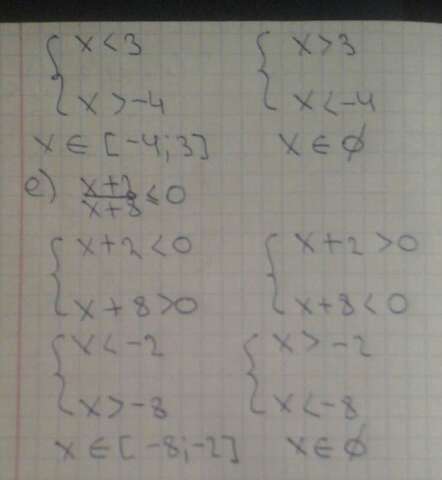 { x < 3    { x > 3
{ x > -4    { x < -4
x ∈ [-4; 3]    x ∈ ∅
e) (x+2)/(x+8) ≤ 0
{ x + 2 < 0    { x + 2 > 0
{ x + 8 > 0    { x + 8 < 0
{ x < -2    { x > -2
{ x > -8    { x < -8
x ∈ [-8; -2]    x ∈ ∅